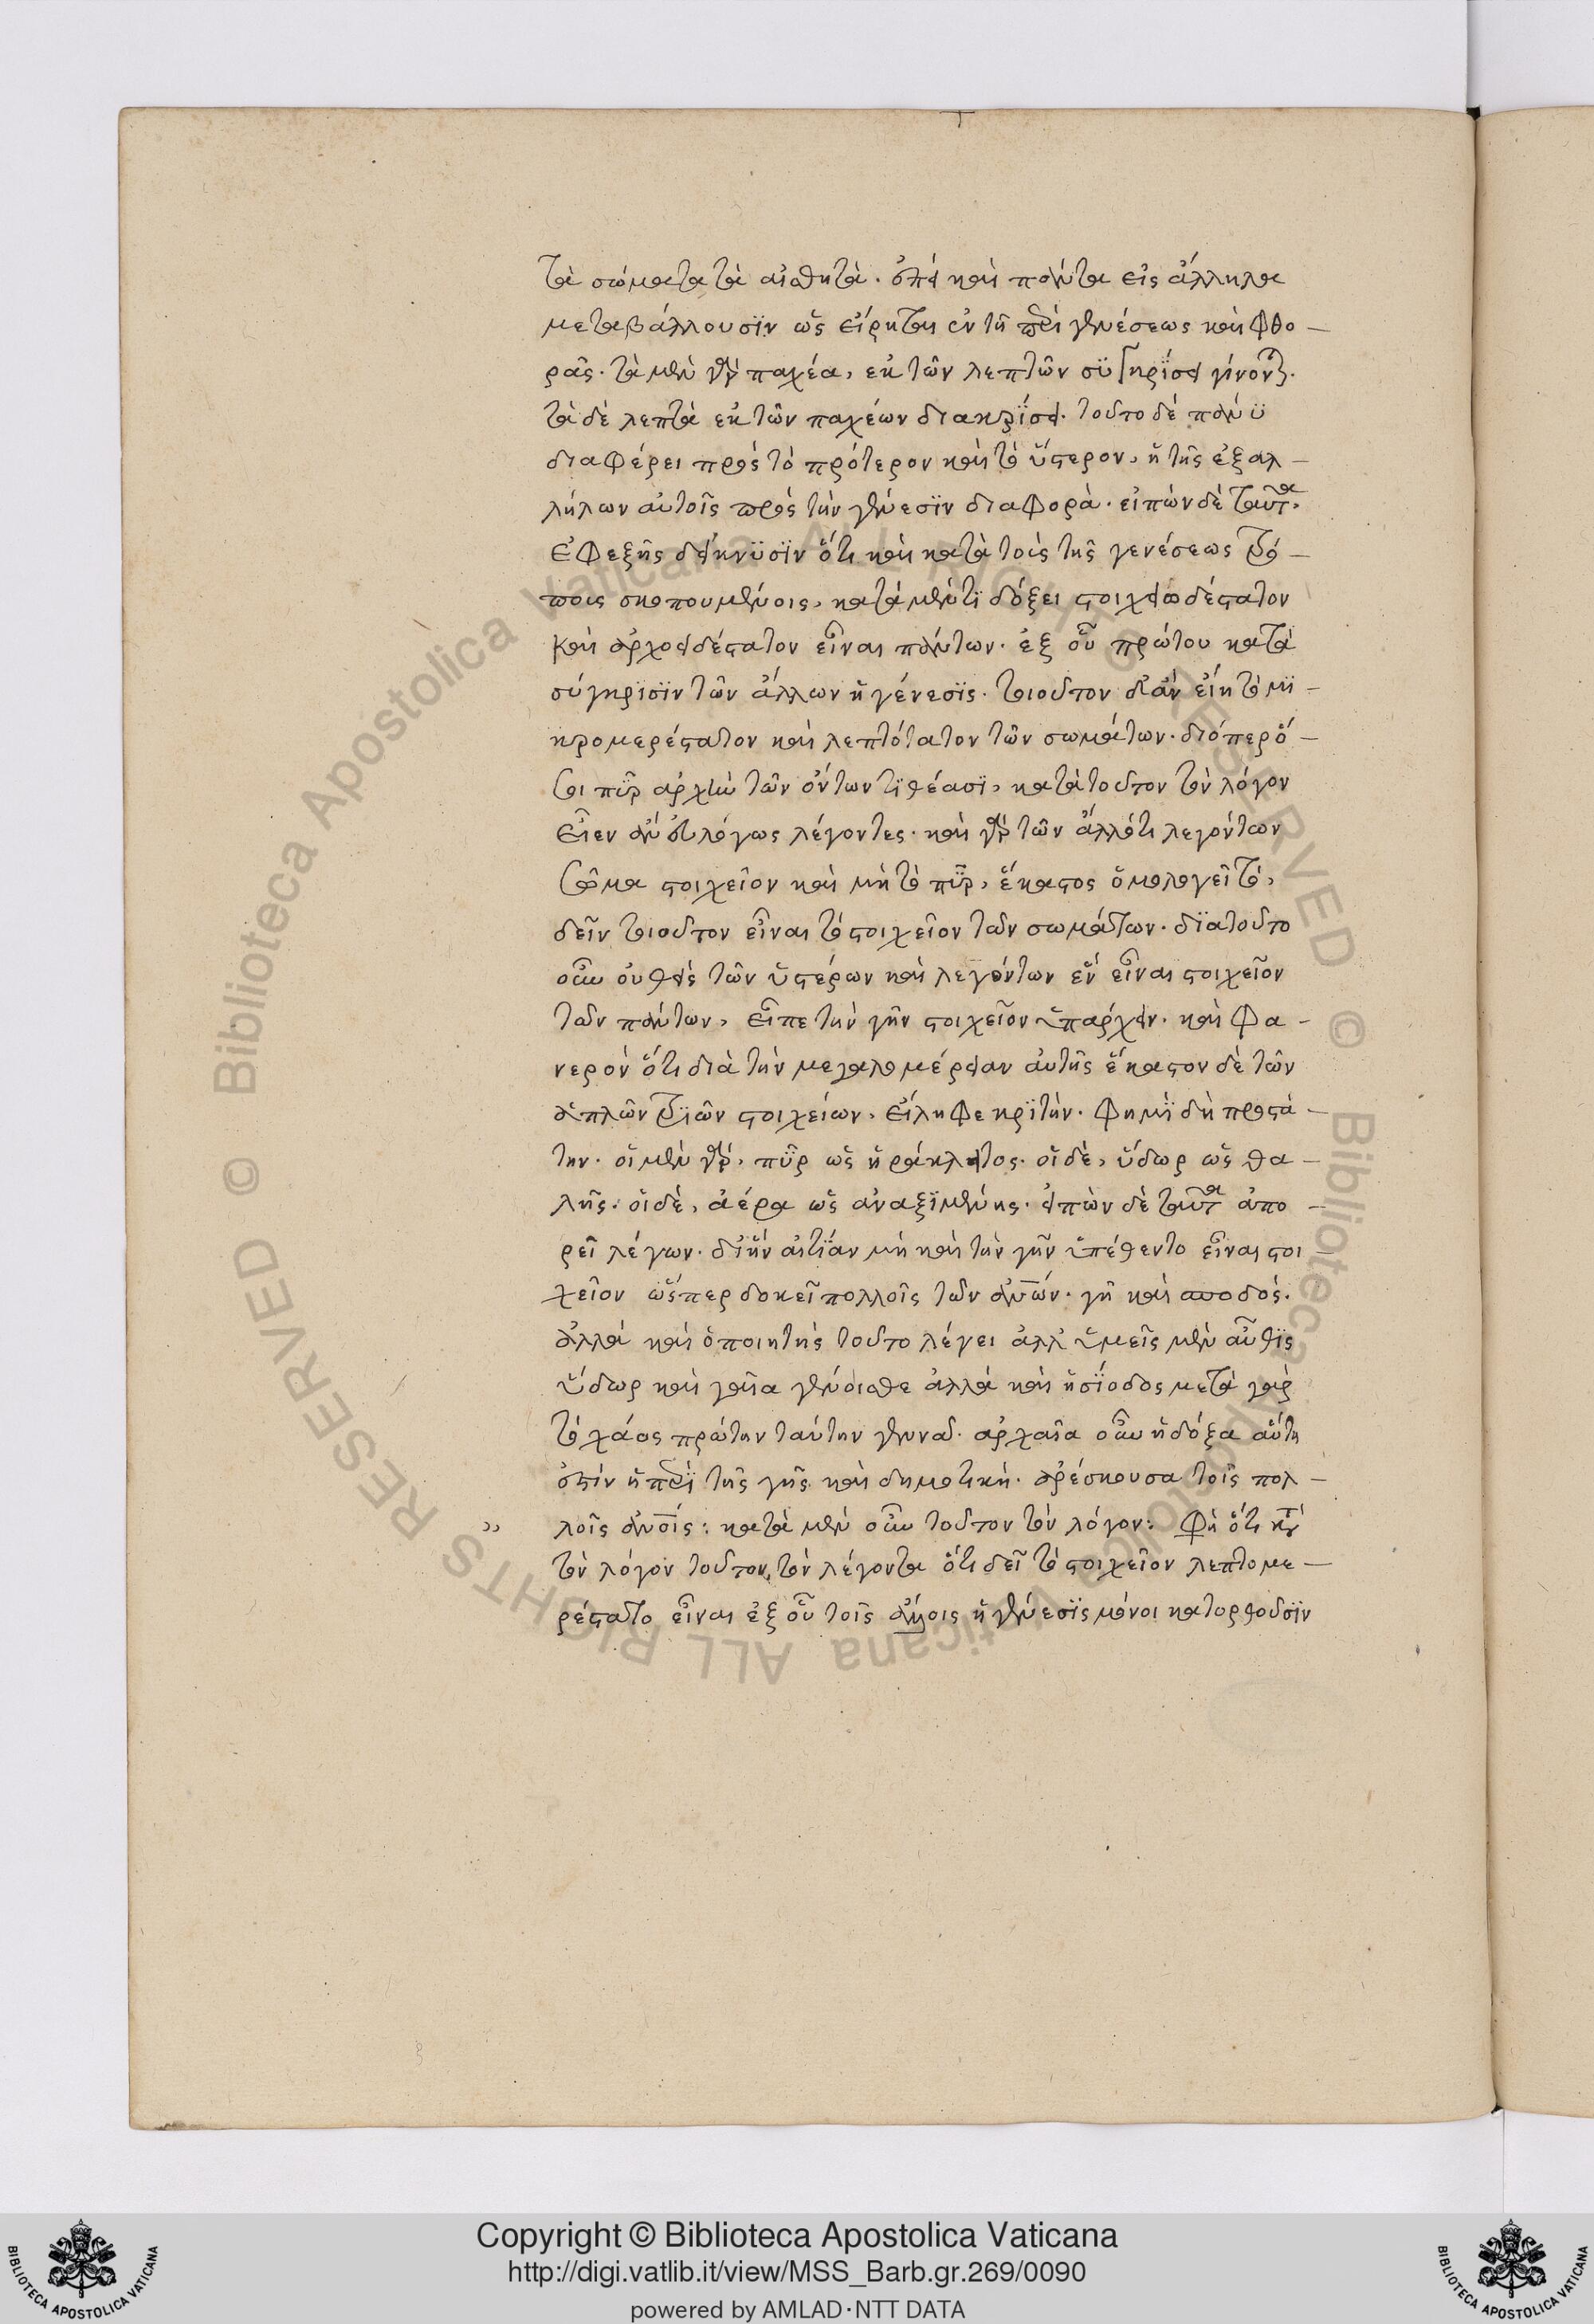 τὰ σώματα τὰ αἰσθητὰ. ἐπεὶ καὶ πάντα εἰς ἄλληλα
μεταβάλλουσϊν ὡς εἴρηται ἐν τῆ περὶ γενέσεως καὶ φθο-
ρᾶς. τὰ μὲν γὰρ παχέα, ἐκ τῶν λεπτῶν συγκρίσει γίνονται.
τὰ δὲ λεπτὰ ἐκ τῶν παχέων διακρίσει. τοῦτο δὲ πάνϋ
διαφέρει πρὸς τὸ πρότερον καὶ τὸ ὕστερον, ἡ τῆς ἐξ ἀλ-
λήλων αὐτοῖς πρὸς τὴν γένεσϊν διαφορὰ. εἰπὼν δὲ ταῦτα,
ἐφεξῆς δείκνϋσϊν ὅτι καὶ κατὰ τοὺς τῆς γενέσεως τρό-
πους σκοπουμένοις, κατὰ μέν τϊ δόξει στοιχειωδέστατον
καὶ ἀρχοειδέστατον εἶναι πάντων. ἐξ οὗ πρώτου κατὰ
σύγκρϊσϊν τῶν ἄλλων ἡ γένεσϊς. τοιοῦτον δ' ἂν εἴη τὸ μϊ-
κρομερέστατον καὶ λεπτότατον τῶν σωμάτων. διόπερ ὅ-
σοι πῦρ ἀρχὴν τῶν ὄντων τϊθέασϊ, κατὰ τοῦτον τὸν λόγον
εἶεν ἂν εὐλόγως λέγοντες. καὶ γὰρ τῶν ἄλλό τι λεγόντων
σῶμα στοιχεῖον καὶ μὴ τὸ πῦρ, ἕκαστος ὁμολογεῖ τὸ,
δεῖν τοιοῦτον εἶναι τὸ στοιχεῖον τῶν σωμάτων. διὰ τοῦτο
οὖν οὐθεὶς τῶν ὑστέρων καὶ λεγόντων ἓν εἶναι στοιχεῖον
τῶν πάντων, εἶπε τὴν γῆν στοιχεῖον ὑπάρχειν. καὶ φα-
νερὸν ὅτι διὰ τὴν μεγαλομέρειαν αὐτῆς ἕκαστον δὲ τῶν
ἁπλῶν τρϊῶν στοιχείων, εἴληφε κρϊτὴν. φημὶ δὴ προστά-
την. οἱ μὲν γὰρ, πῦρ ὡς ἡράκλειτος. οἱ δὲ, ὕδωρ ὡς θα-
λῆς: οἱ δὲ, ἀέρα ὡς ἀναξϊμένης. εἰπὼν δὲ ταῦτα ἀπο-
ρεῖ λέγων. δι' ἣν αἰτίαν μὴ καὶ τὴν γῆν ὑπέθεντο εἶναι στοι-
χεῖον ὥσπερ δοκεῖ πολλοῖς τῶν ἀνῶν. γῆ καὶ σποδός.
ἀλλὰ καὶ ὁ ποιητὴς τοῦτο λέγει ἀλλ' ὑμεῖς μὲν αὖθϊς
ὕδωρ καὶ γαῖα γένοισθε ἀλλὰ καὶ ἡσίοδος μετὰ γὰρ
τὸ χάος πρώτην ταύτην γεννᾶ. ἀρχαῖα οὖν ἡ δόξα αὕτη
ἐστὶν ἡ περὶ τῆς γῆς καὶ δημοτικὴ. ἀρέσκουσα τοῖς πολ-
λοῖς ἀνοῖς: κατὰ μὲν οὖν τοῦτον τὸν λόγον: Φὴ ὅτι κατὰ
τὸν λόγον τοῦτον, τὸν λέγοντα ὅτι δεῖ τὸ στοιχεῖον λεπτομε-
ρέστατο εἶναι ἐξ οὗ τοῖς ἄλλοις ἡ γένεσϊς μόνοι κατορθοῦσϊν
Copyright © Biblioteca Apostolica Vaticana
http://digi.vatlib.it/view/MSS_Barb.gr.269/0090
powered by AMLAD·NTT DATA
BIBLIOTECA APOSTOLICA VATICANA
BIBLIOTECA APOSTOLICA VATICANA
© Biblioteca Apostolica Vaticana ALL RIGHTS RESERVED
© Biblioteca Apostolica Vaticana ALL RIGHTS RESERVED